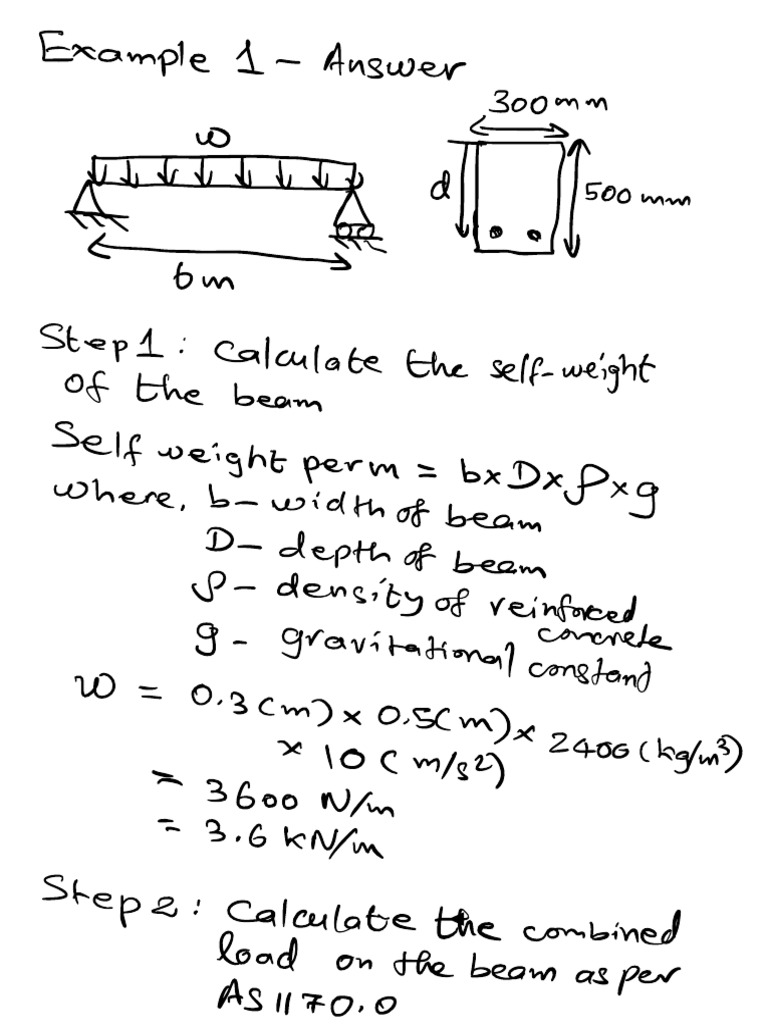 Example 1 - Answer
300mm
w
d
500 mm
6m
Step1: Calculate the self-weight
of the beam
Self weight per m = b×D×ρ×g
where, b- width of beam
D- depth of beam
ρ- density of reinforced
concrete
g- gravitational constant
w = 0.3(m) × 0.5(m) × 2400(kg/m³)
× 10 ( m/s²)
= 3600 N/m
= 3.6 kN/m
Step2: Calculate the combined
load on the beam as per
AS1170.0